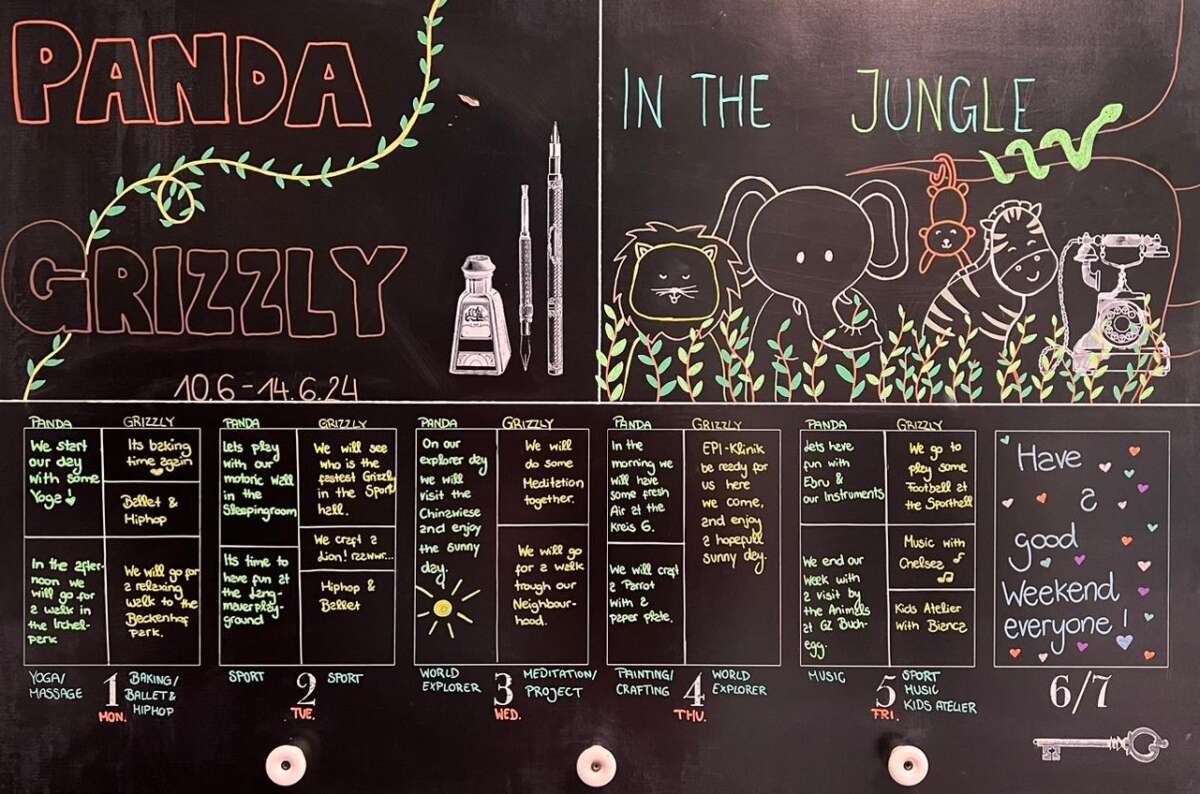 PANDA
GRIZZLY
10.6 - 14.6.24
IN THE JUNGLE
PANDA
We start
our day
with some
Yoga!
In the after-
noon we
will go for
a walk in
the Irchel-
park
YOGA/
MASSAGE
GRIZZLY
Its baking
time again
Ballet &
Hiphop
We will go for
a relaxing
walk to the
Beckenhof
Park.
BAKING/
BALLET &
HIPHOP
1
MON.
PANDA
Lets play
with our
motoric wall
in the
Sleepingroom
Its time to
have fun at
the Lang-
mauerplay-
ground
SPORT
GRIZZLY
We will see
who is the
fastest Grizzly
in the Sport
hall.
We craft a
Lion! rzzwwr...
Hiphop &
Ballet
SPORT
2
TUE.
PANDA
On our
explorer day
we will
visit the
Chinawiese
and enjoy
the sunny
day.
WORLD
EXPLORER
GRIZZLY
We will
do some
Meditation
together.
We will go
for a walk
trough our
Neighbour-
hood.
MEDITATION/
PROJECT
3
WED.
PANDA
In the
morning we
will have
some fresh
Air at the
Kreis 6.
We will craft
a Parrot
with a
paper plate.
PAINTING/
CRAFTING
GRIZZLY
EPI-Klinik
be ready for
us here
we come,
and enjoy
a hopefull
sunny day.
WORLD
EXPLORER
4
THU.
PANDA
Lets have
fun with
Ebru &
our Instruments
We end our
Week with
a visit by
the Animals
at GZ Buch-
egg.
MUSIC
GRIZZLY
We go to
play some
Football at
the Sporthall
Music with
Chelsea
Kids Atelier
with Bianca
SPORT
MUSIC
KIDS ATELIER
5
FRI.
Have
a
good
Weekend
everyone!
6/7